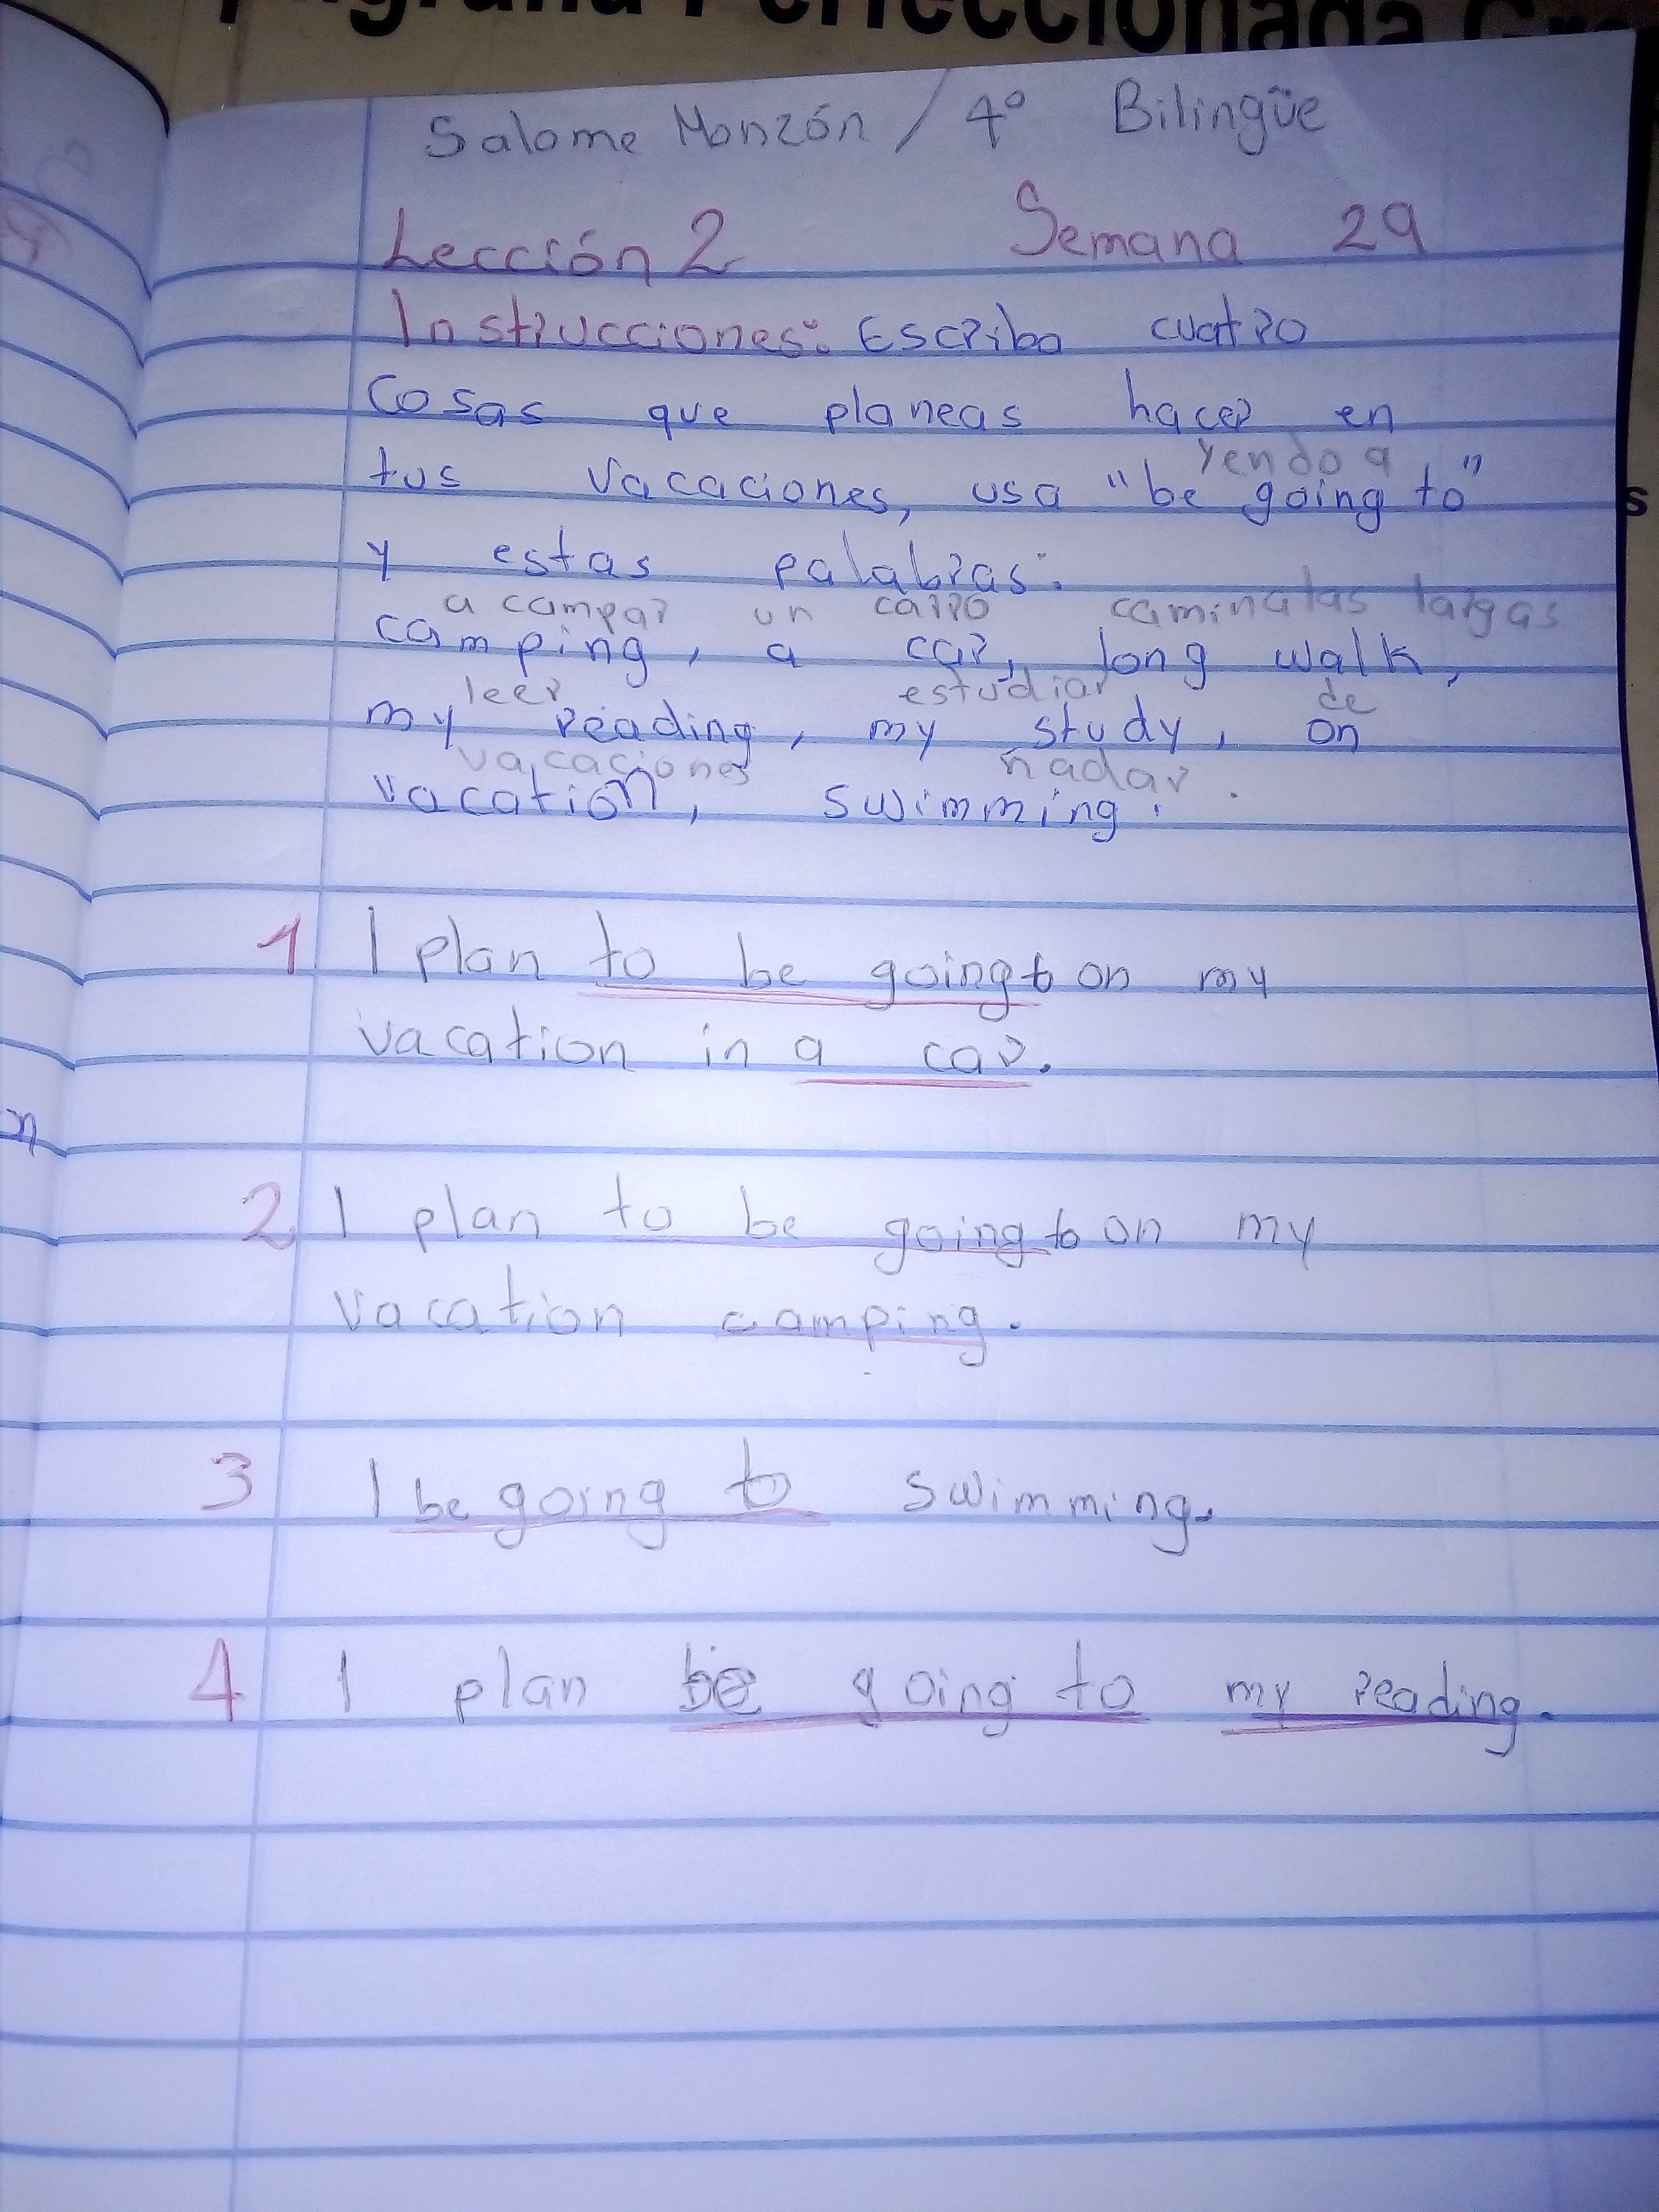 Perfeccionada
Salome Monzón / 4° Bilingüe
Lección 2 Semana 29
Instrucciones: Escriba cuatro
cosas que planeas hacer en
yendo a
tus vacaciones, usa "be going to"
y estas palabras:
a campar un carro caminatas largas
camping, a car, long walk,
leer estudiar de
my reading, my study, on
vacaciones nadar
vacation, swimming.
1 I plan to be going to on my
vacation in a car.
2 I plan to be going to on my
vacation camping.
3 I be going to swimming.
4 I plan be going to my reading.